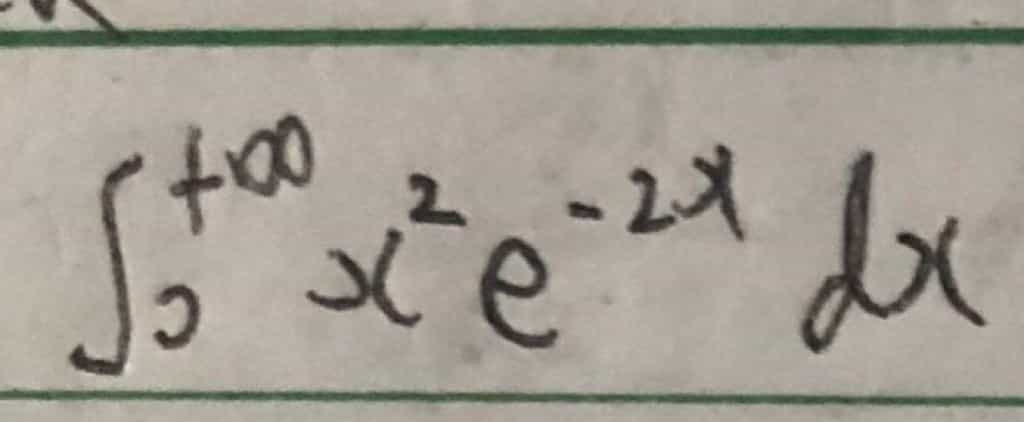 ∫₀^{+∞} x² e^{-2x} dx